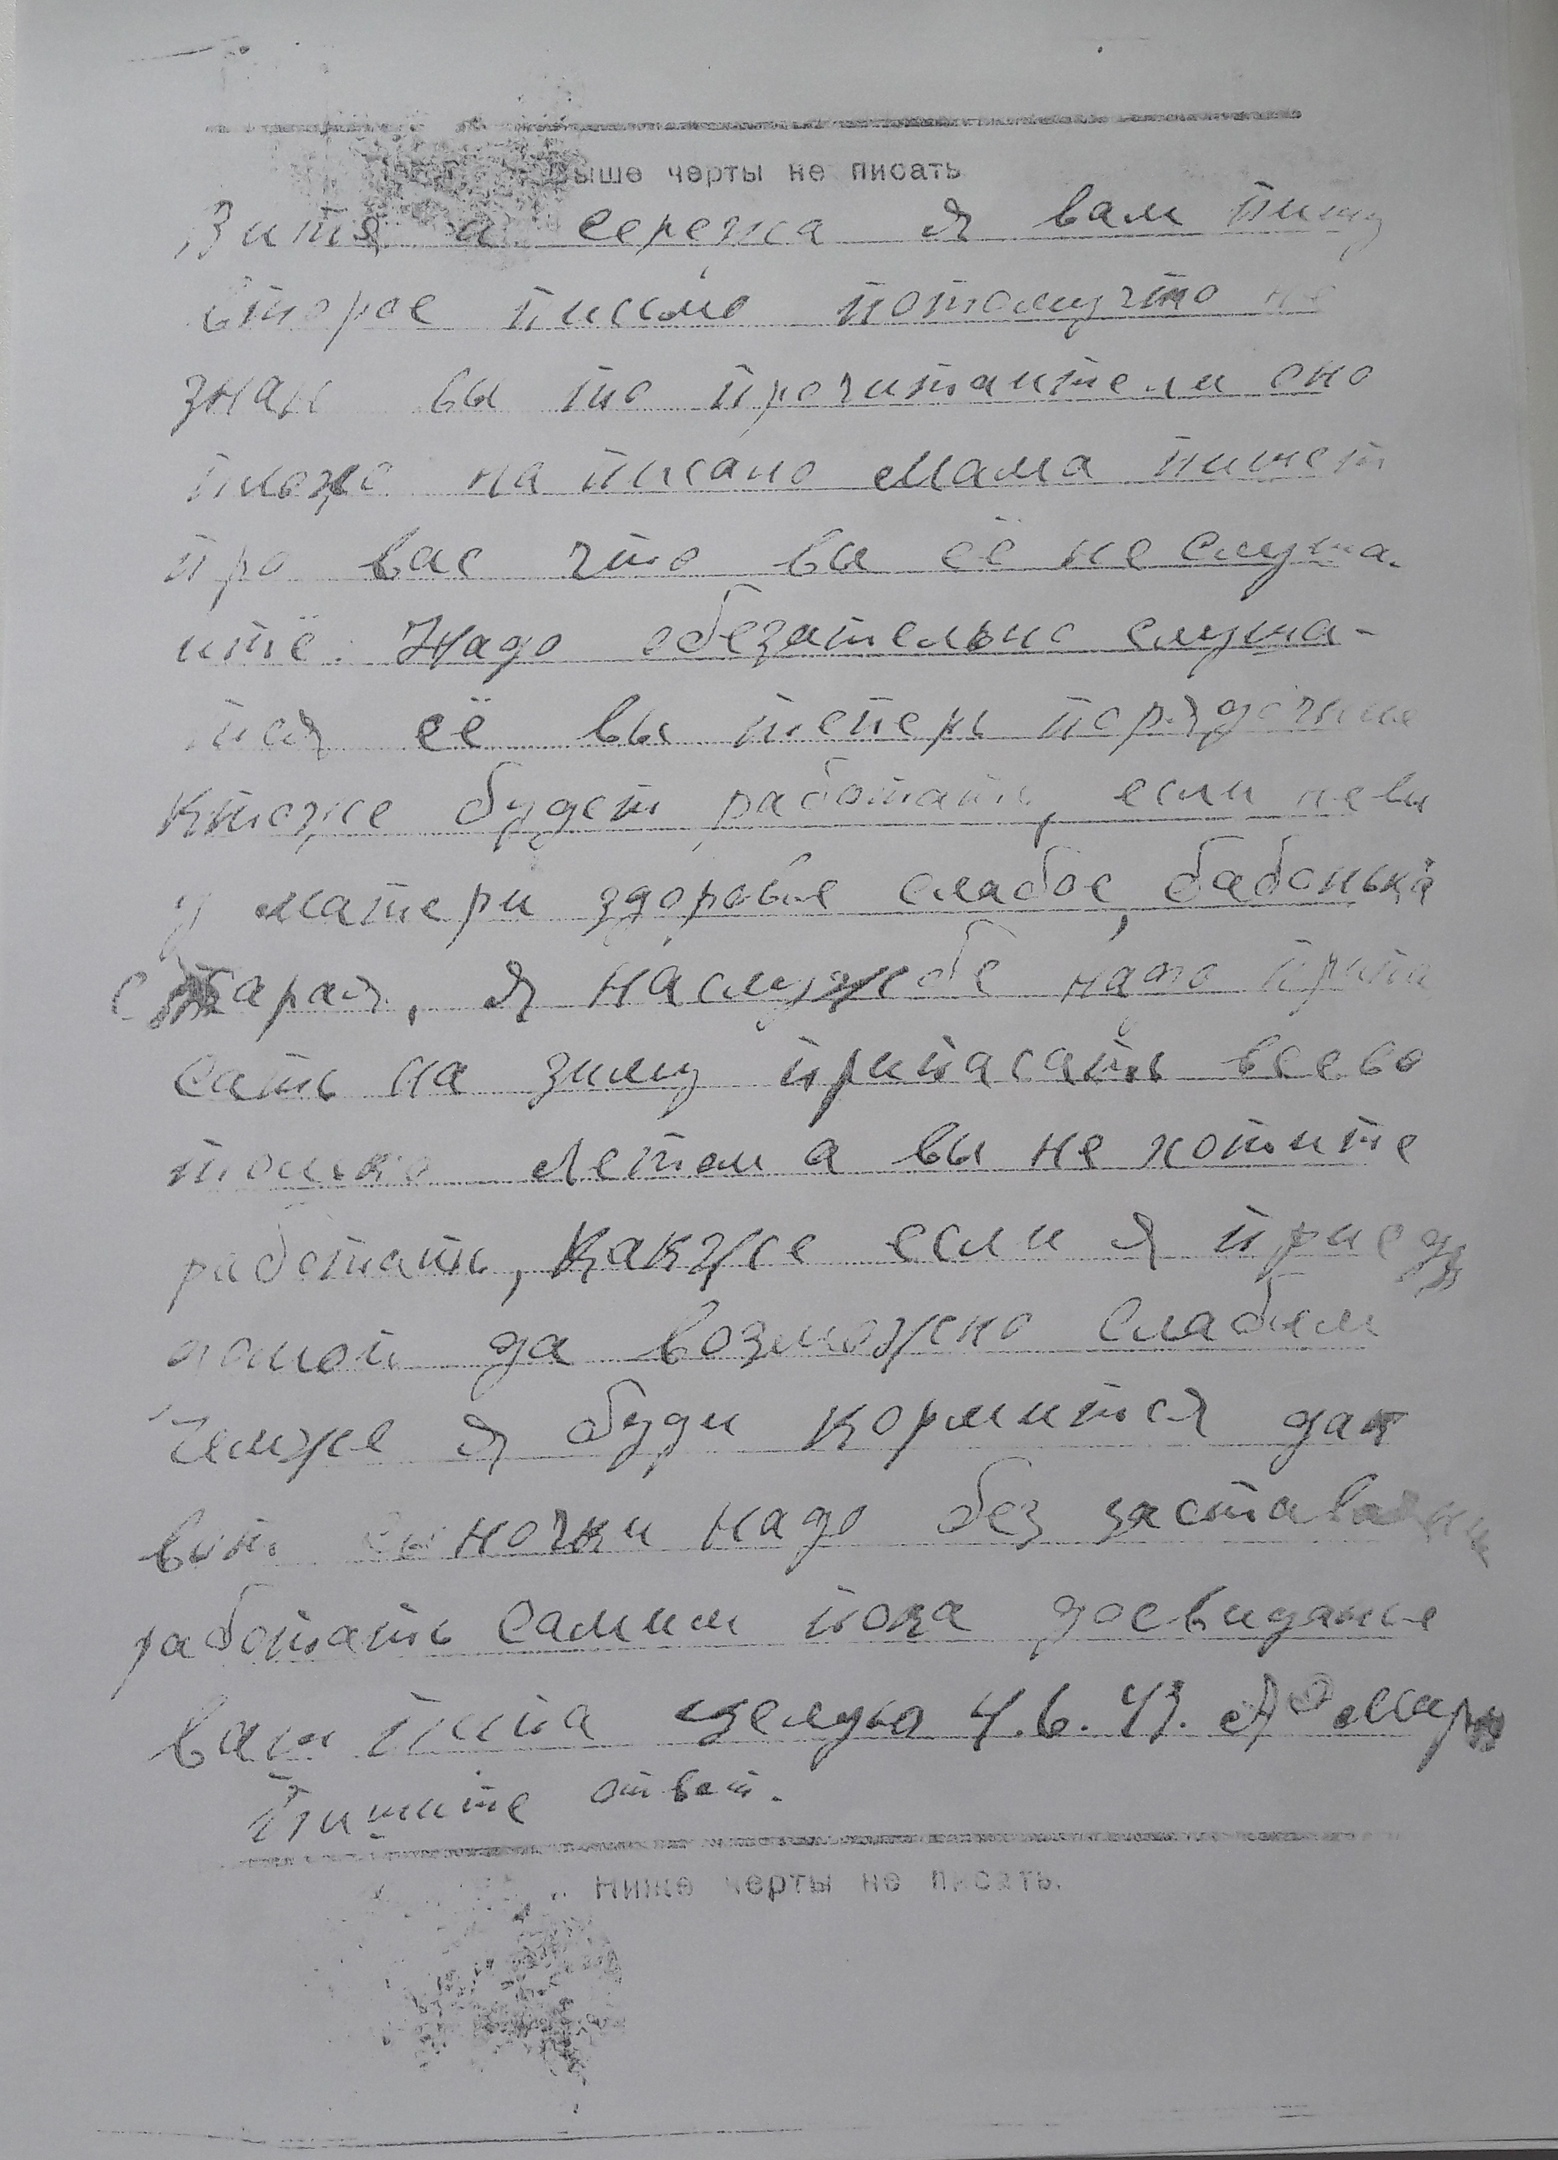 Выше черты не писать
Витя и сережа я вам пишу
второе письмо потомучто не
знаю вы то прочитаители оно
плохо на писано Мама пишет
про вас что вы её не слуша-
ите. Надо обезательно слуша-
тся её вы теперь порядочные
ктоже будет работать, если не вы
у матери здоровье слабое, бабонька
старая, я наслужбе надо припа
сать на зиму припасать всево
только летом а вы не хотите
работать, Какже если я приеду
домой да возможно слабым
Чемже я буду кормится дак
вот сыночки надо без заставления
работать самим пока досвиданье
ваш папа целую 4.6.43.
Пишите ответ.
Ниже черты не писать.